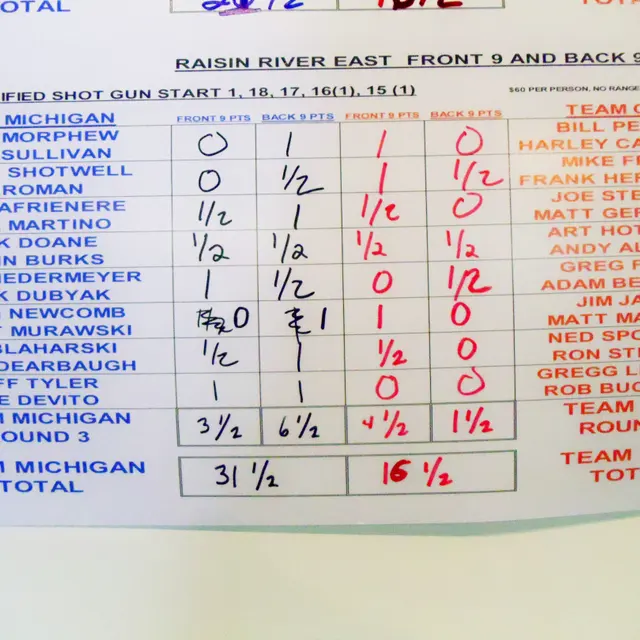 OTAL 26 1/2 TOTA
RAISIN RIVER EAST FRONT 9 AND BACK 9
IFIED SHOT GUN START 1, 18, 17, 16(1), 15 (1) $60 PER PERSON, NO RANGE
MICHIGAN FRONT 9 PTS BACK 9 PTS FRONT 9 PTS BACK 9 PTS TEAM O
MORPHEW 0 1 1 0 BILL PE
SULLIVAN HARLEY CA
SHOTWELL 0 1/2 1 1/2 MIKE F
ROMAN FRANK HER
AFRIENERE 1/2 1 1/2 0 JOE STE
MARTINO MATT GE
K DOANE 1/2 1/2 1/2 1/2 ART HOT
IN BURKS ANDY AU
IEDERMEYER 1 1/2 0 1/2 GREG F
K DUBYAK ADAM BE
NEWCOMB 0 1 1 0 JIM JA
MURAWSKI MATT MA
BLAHARSKI 1/2 1 1/2 0 NED SPO
DEARBAUGH RON STE
FF TYLER 1 1 0 0 GREGG L
E DEVITO ROB BUC
MICHIGAN 3 1/2 6 1/2 4 1/2 1 1/2 TEAM
OUND 3 ROUN
MICHIGAN 31 1/2 16 1/2 TEAM
TOTAL TOT